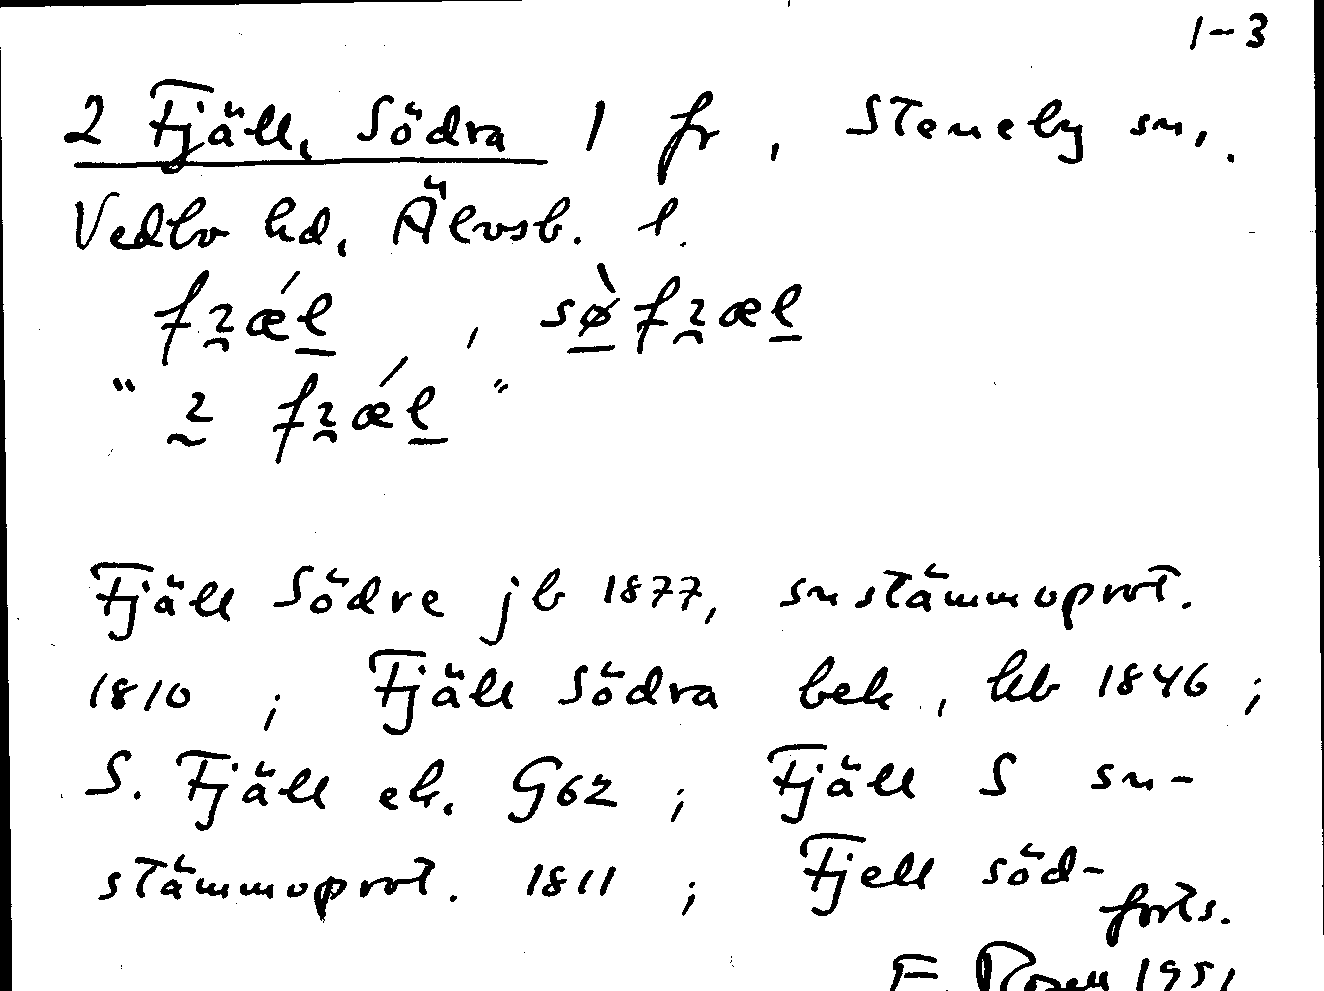 1-3
2 Fjäll, Södra 1 fr, Steneby sn,.
Vedbo hd, Älvsb. l.
Fjäll Södre jb 1877, snstämmoprot.
1810 ; Fjäll Södra bek, hb 1846 ;
S. Fjäll ek. G62 ; Fjäll S sn-
stämmoprot. 1811 ; Fjell söd-
forts.
F. Rosell 1951